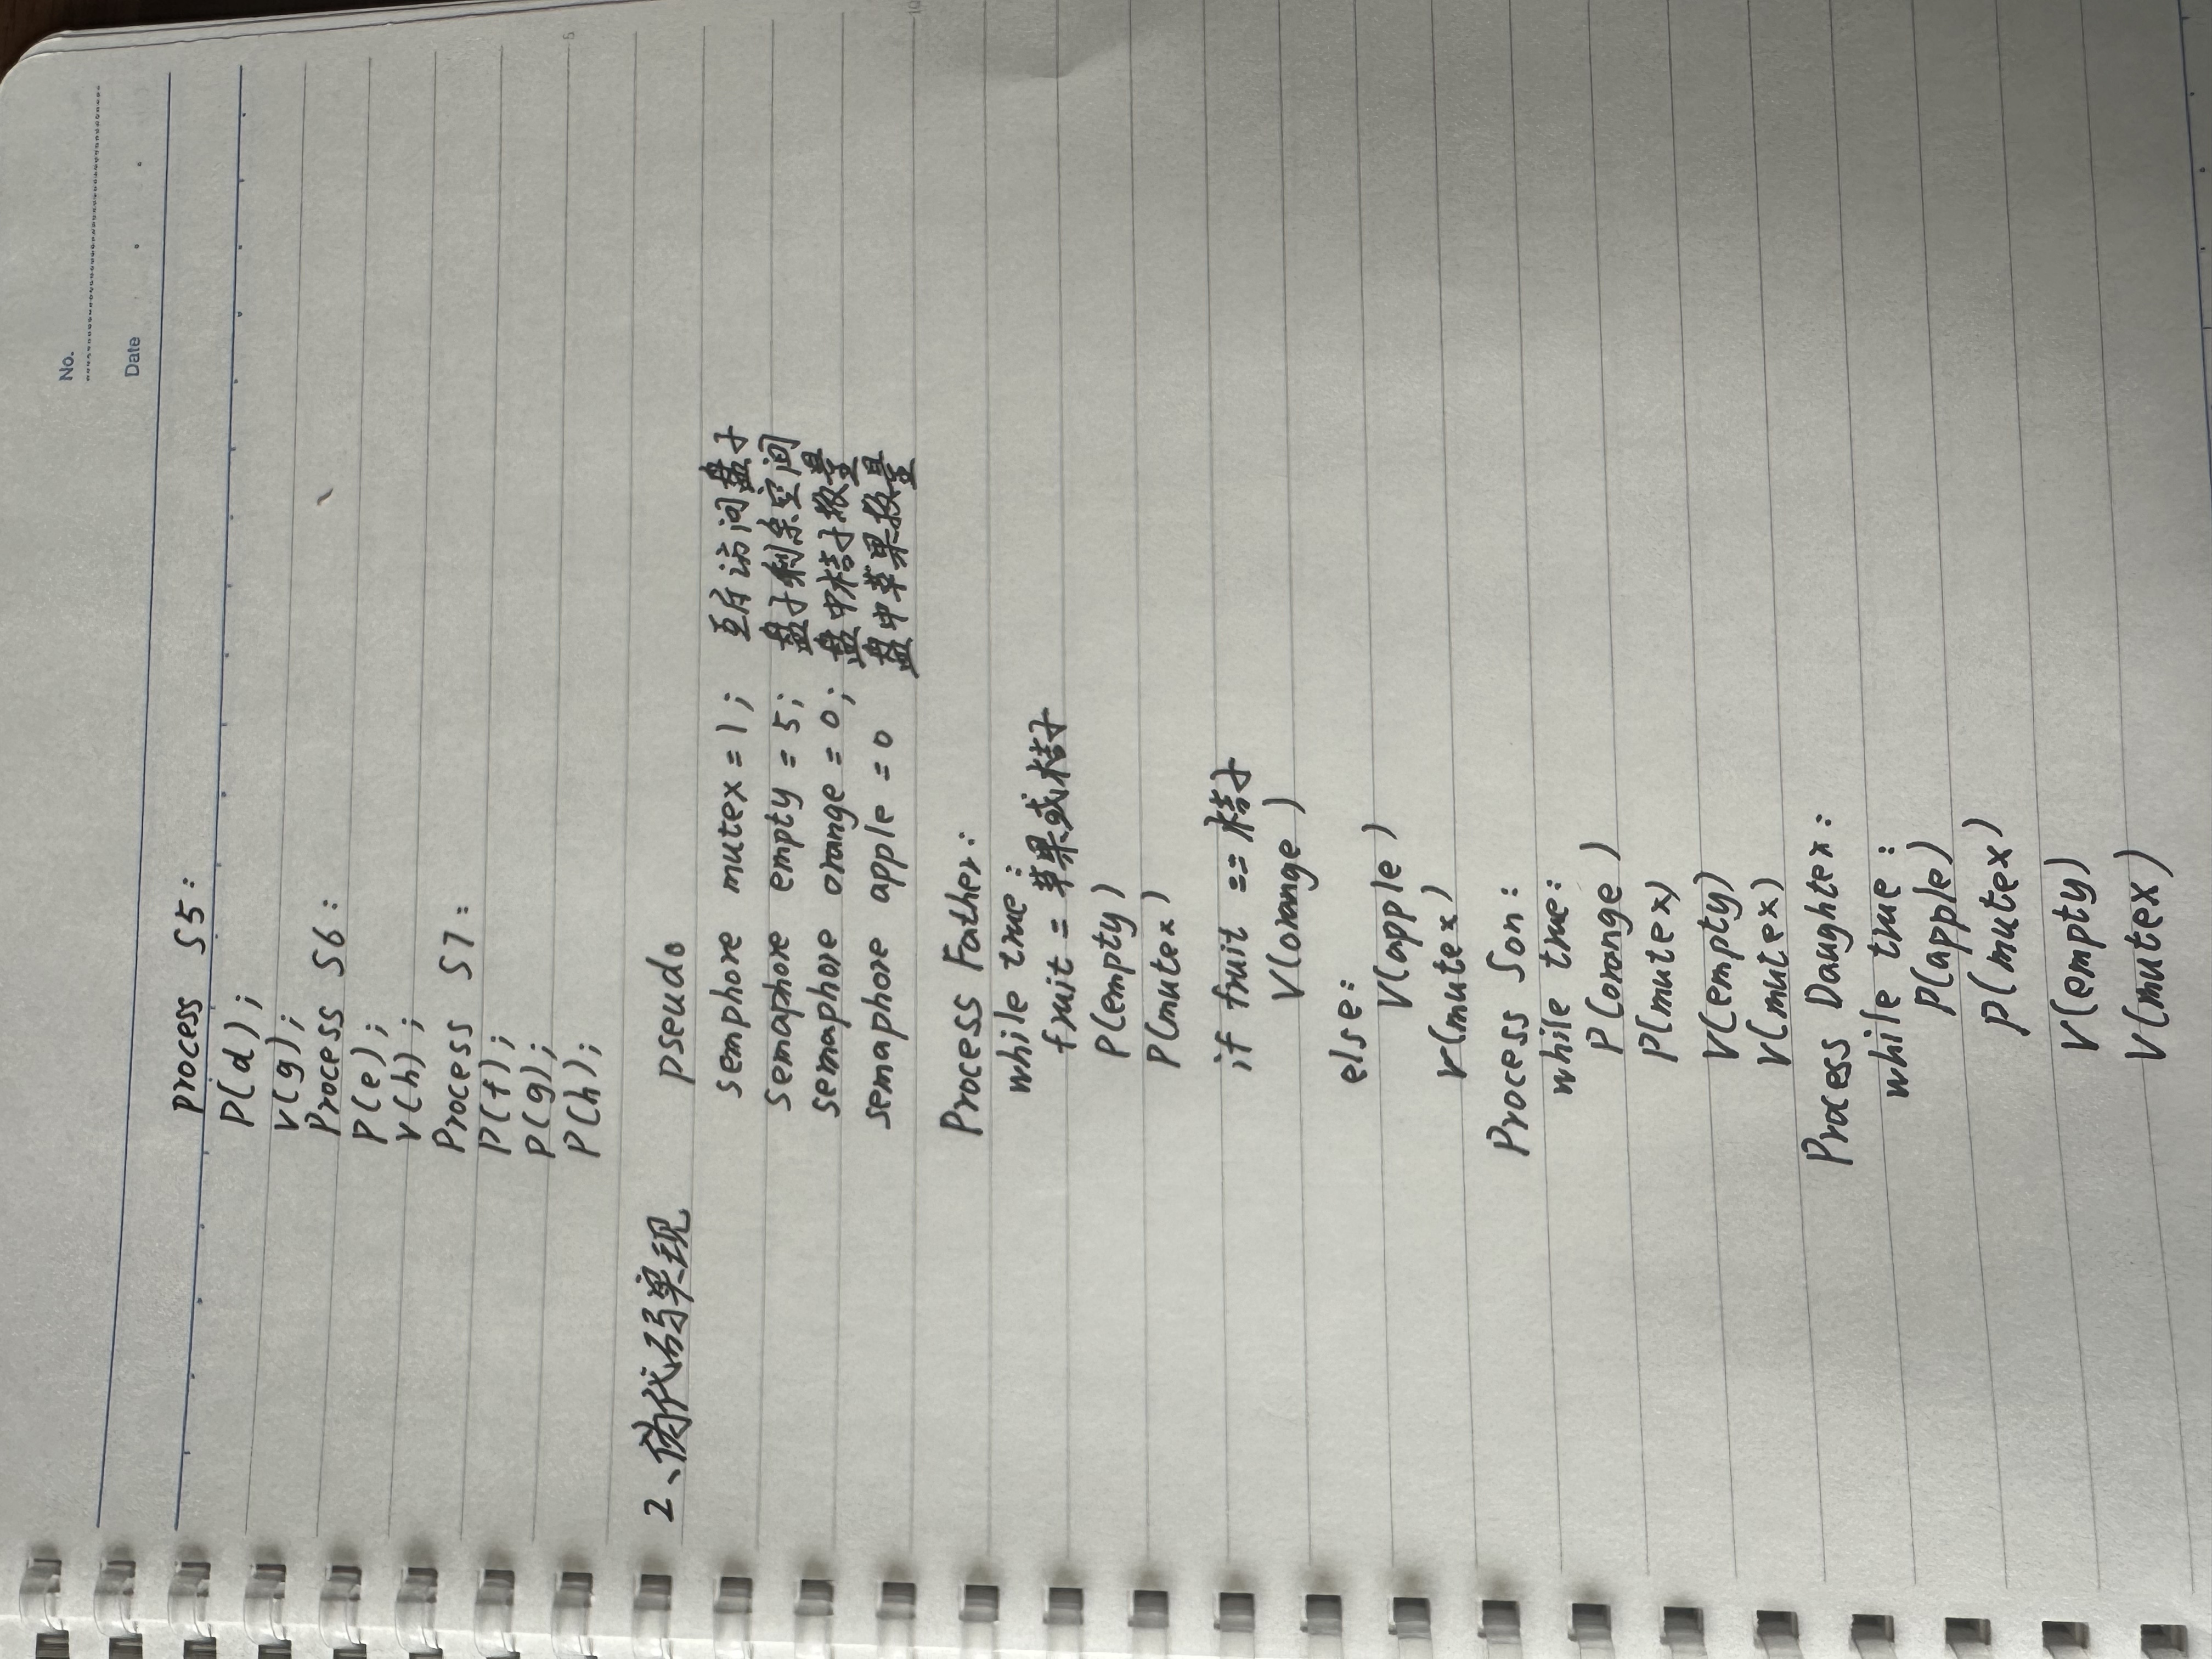 No.
Date
process S5:
P(d);
v(g);
Process S6:
P(e);
v(h);
Process S7:
P(f);
p(g);
P(h);
5
2、伪代码实现 pseudo
semphore mutex=1; 互斥访问盘子
semaphore empty=5; 盘子剩余空间
semaphore orange=0; 盘中桔子数量
semaphore apple=0 盘中苹果数量
10
Process Father:
while true:
fruit = 苹果或桔子
P(empty)
P(mutex)
if fruit == 桔子
V(orange)
else:
V(apple)
v(mutex)
Process Son:
while true:
P(orange)
P(mutex)
V(empty)
V(mutex)
Process Daughter:
while true:
P(apple)
p(mutex)
V(empty)
V(mutex)